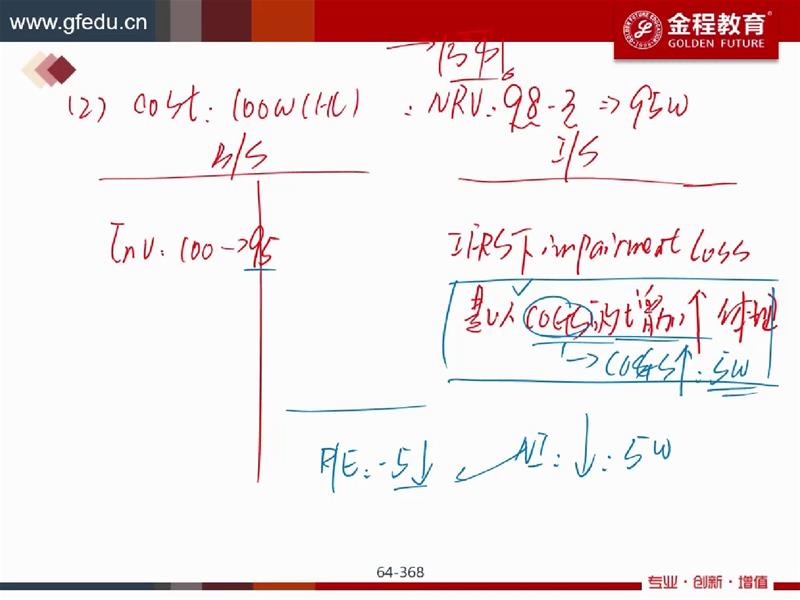 www.gfedu.cn
金程教育
GOLDEN FUTURE
(2) COST: 100W(HC) : NRV: 98-3 => 95W
B/S
I/S
Inv: 100 → 95
IFRS下 impairment loss
是以 COGS 的增加↑ 体现
→ COGS↑: 5W
R/E: -5↓
NI: ↓: 5W
64-368
专业·创新·增值